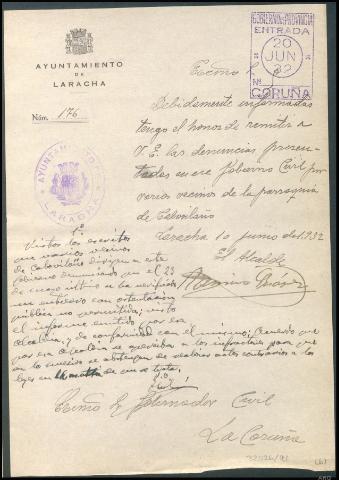 AYUNTAMIENTO
DE
LARACHA
Núm. 176
GOBIERNO DE PROVINCIA
ENTRADA
20
JUN
32
Nº
CORUÑA
Excmo Sr.
Debidamente informadas
tengo el honor de remitir a
V. E. las denuncias presen-
tadas en ese Gobierno Civil por
varios vecinos de la parroquia
de Caboilaño
AYUNTAMIENTO
LARACHA
Laracha 10 junio de 1.932
El Alcalde
Vistos los escritos
que varios vecinos
de Caboilaño dirigen a este
Gobierno denunciando que el 23
de mayo último se ha verificado
un entierro con ostentación
pública no permitida; visto
el informe emitido por esa
Alcaldía, y de conformidad con el mismo,
por esa Alcaldía se aperciba a los infractores para que
en lo sucesivo se abstengan de realizar actos contrarios a las
leyes en la materia de que se trata,
Excmo Sr Gobernador Civil
La Coruña